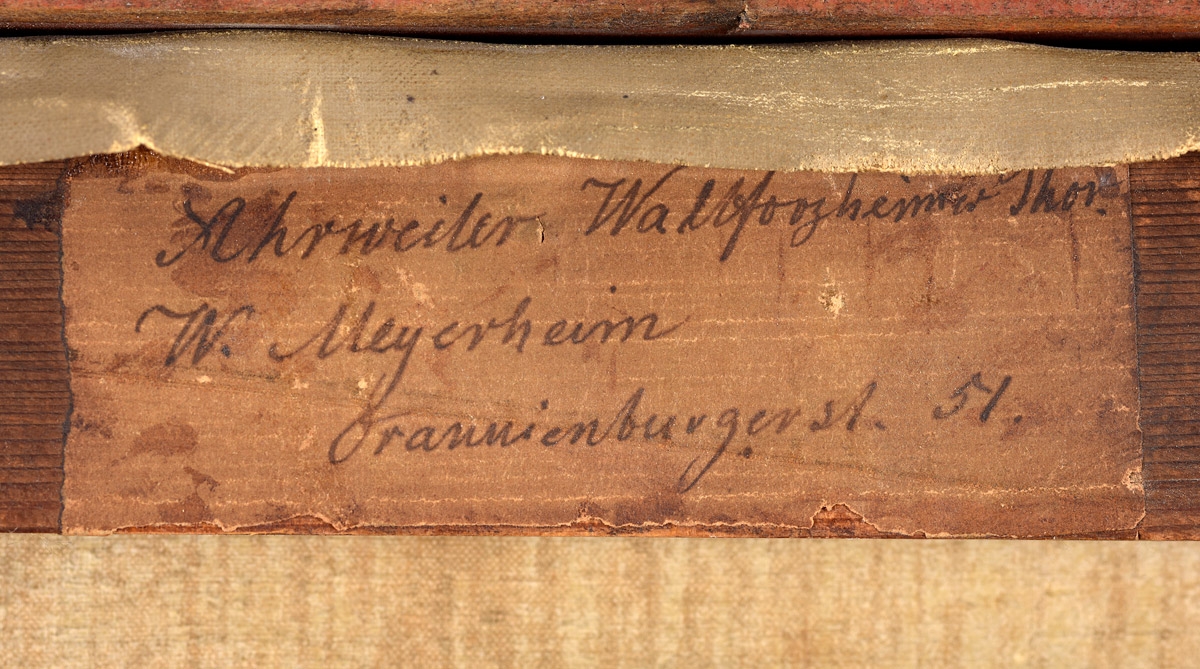 Ahrweiler Wallforzheimer Thor.
W. Meyerheim
Orannienburgerst. 51.